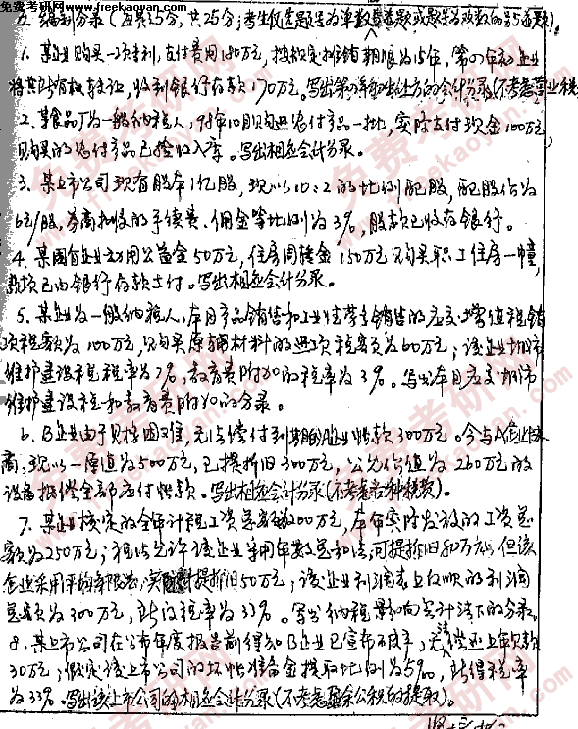 免费考研网
www.freekaoyan.com
编制分录（每题5分，共25分；考生仅选题号为单数
1. 某企业购买一项专利，支付费用180万元，摊销期限为15年，企业
将其所有权转让，收到银行存款170万元。写出会计分录（不考虑营业税
2. 某食品厂为一般纳税人，购进农副产品一批，实际支付现金100万元，
购买的农副产品已验收入库。写出相应会计分录。
3. 某上市公司现有股本1亿股，现以10:2的比例配股，配股价为
6元/股，券商扣收的手续费、佣金等比例为3%，股款已收存银行。
4. 某国有企业动用公益金50万元，住房周转金150万元购买职工住房一幢，
款项已由银行存款支付。写出相应会计分录。
5. 某企业为一般纳税人，本月产品销售的应交增值税销
项税额为100万元，购买原辅材料的进项税额为60万元；该企业城市
维护建设税税率为7%，教育费附加的税率为3%。写出本月应交城市
维护建设税和教育费附加的分录。
6. B企业由于财务困难，无法偿付到期的账款300万元。今与A企业协
商，现以一原值为500万元，已提折旧300万元，公允价值为260万元的
设备抵偿全部应付帐款。写出相应会计分录（不考虑各种税费）。
7. 某企业核定的全年计税工资总额为200万元，本年实际发放的工资总
额为250万元；税法允许该企业采用年数总和法，可提折旧80万元，但该
企业采用平均年限法，实际提折旧50万元；该企业利润表上反映的利润
总额为300万元，所得税率为33%。写出纳税影响会计法下的分录。
8. 某上市公司在公布年度报告前得知B企业已宣布破产，无法偿还上年欠款
30万元；假定该上市公司的坏帐准备金提取比例为5‰，所得税率
为33%。写出该上市公司的相应会计分录（不考虑盈余公积的提取）。
免费考研网
freekaoyan.com